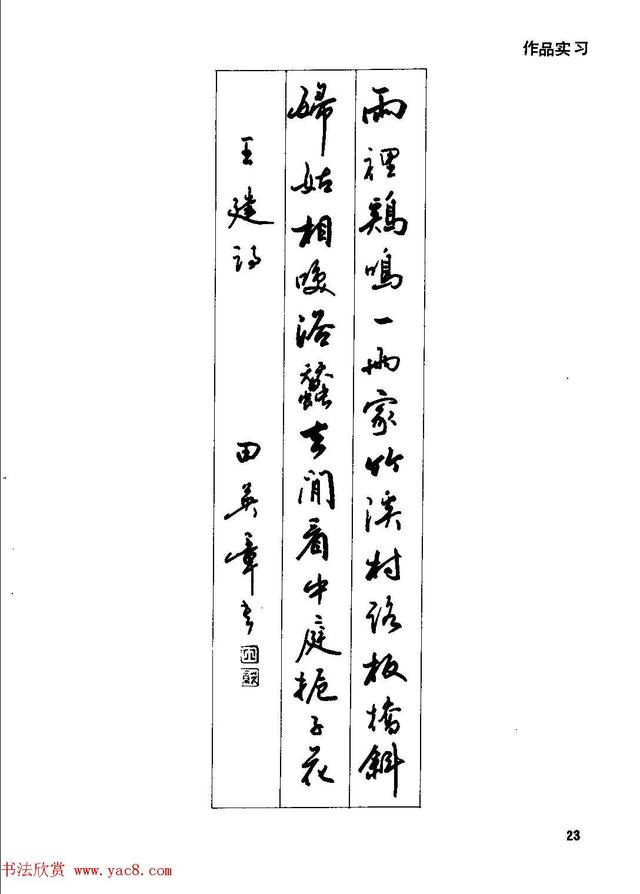 作品实习
雨裡鷄鳴一兩家竹溪村路板橋斜
婦姑相喚浴蠶去閒看中庭栀子花
王建詩 田英章書
23
书法欣赏 www.yac8.com